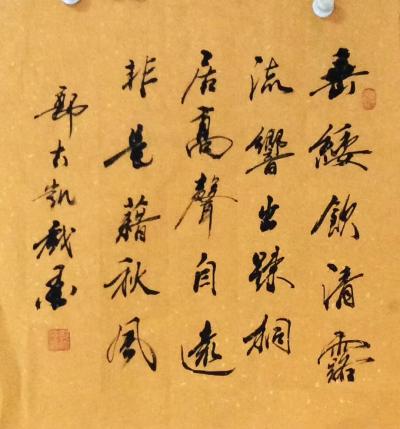 垂緌飲清露
流響出疎桐
居高聲自遠
非是藉秋風
鄭大凱戲墨